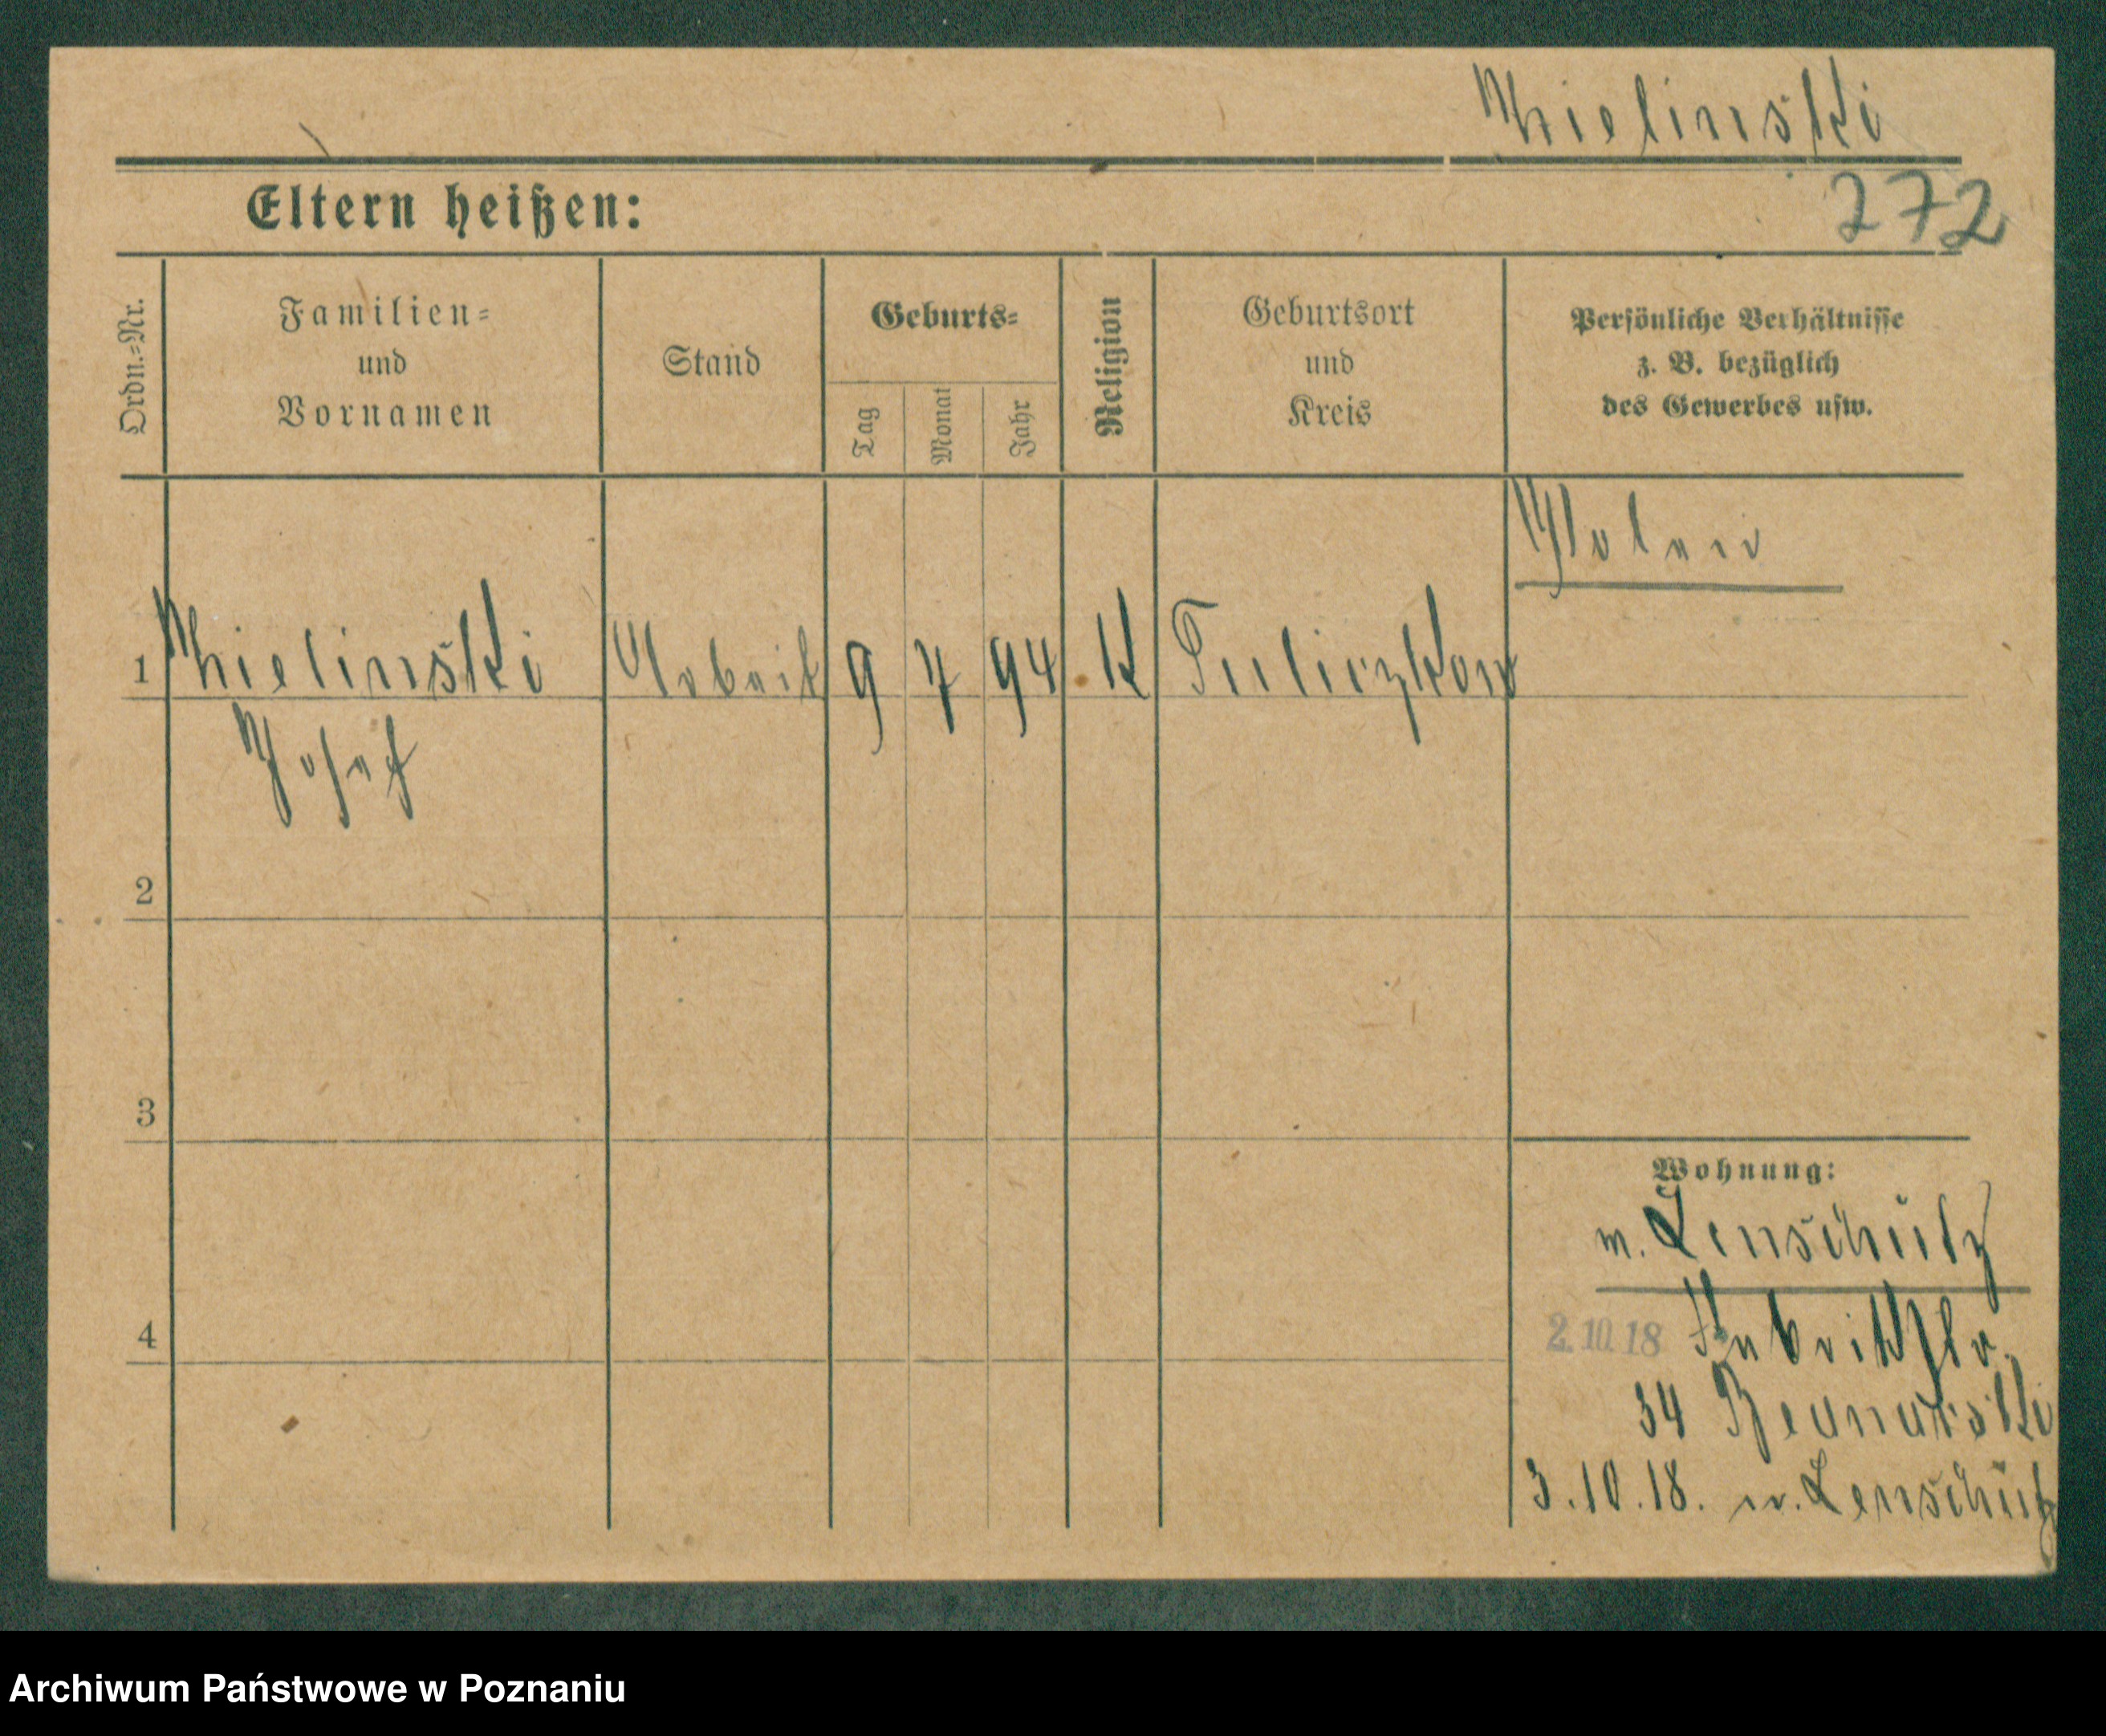 Thielinski
272
Eltern heißen:
Ordn.=Nr.
Familien=
und
Vornamen
Stand
Geburts=
Tag
Monat
Jahr
Religion
Geburtsort
und
Kreis
Persönliche Verhältnisse
z. B. bezüglich
des Gewerbes usw.
1 Thielinski Arbeit 9 7 94 K Tuliczkow
Josef
2
3
4
Wohnung:
n. Lenschütz
2.10.18 Fabrikstr.
34 Bednarski
3.10.18. n. Lenschütz
Archiwum Państwowe w Poznaniu